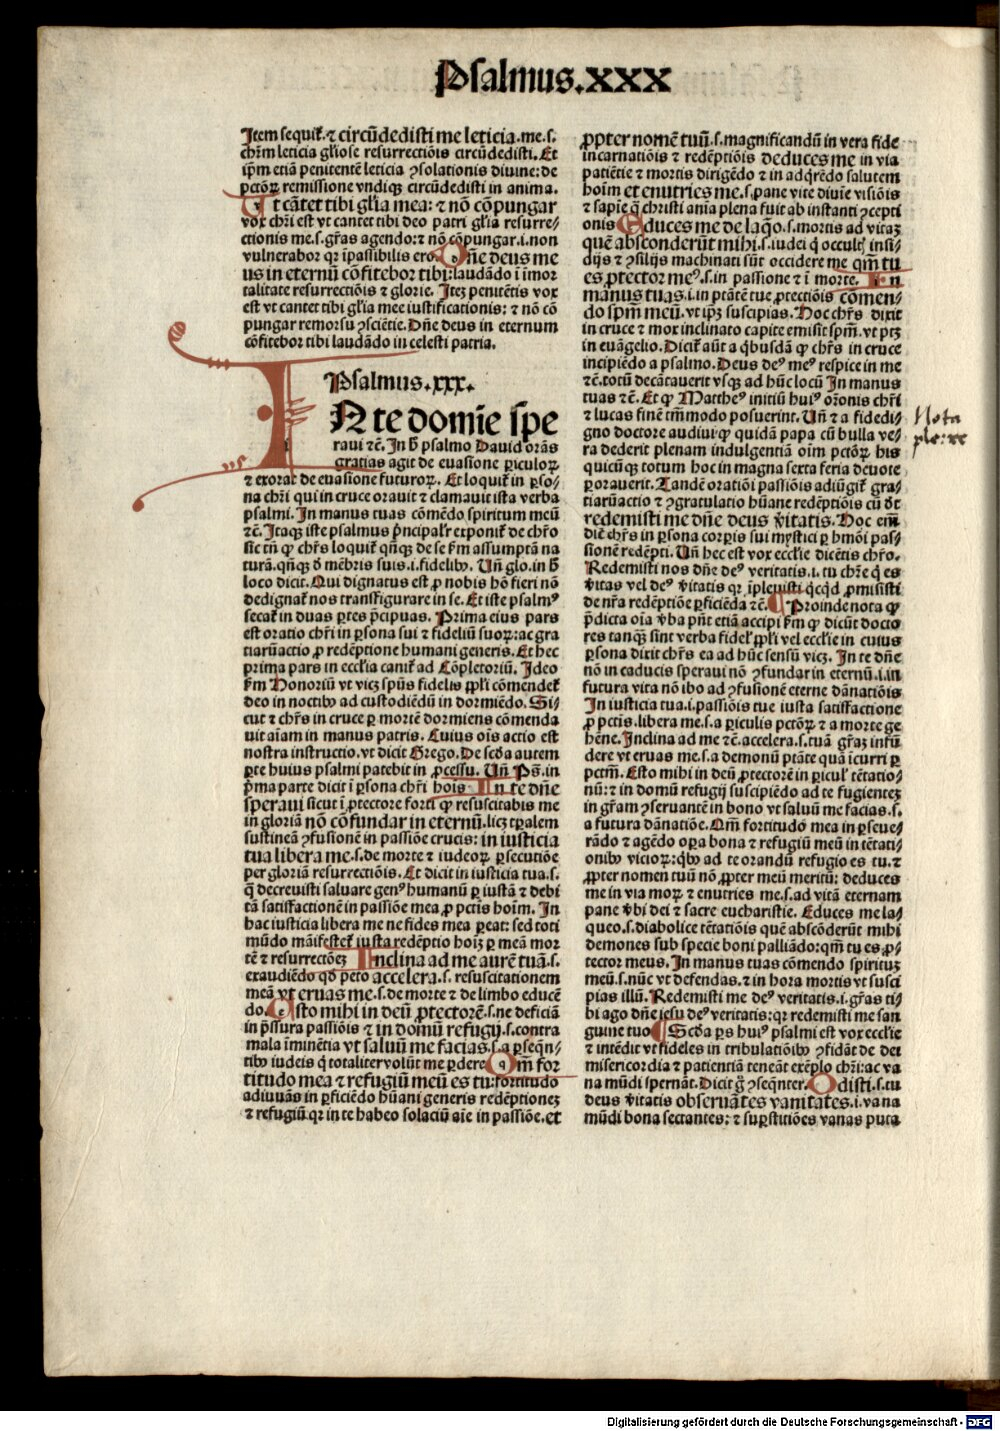 Psalmus.XXX
Item sequit̃.⁊ circũdedisti me leticia.me.s.
chr̃m leticia gl̃iose resurrectiõis circũdedisti.Et
ip̃m etiã penitentẽ leticia ꝯsolationis diuine:de
pctõꝝ remissione vndiqꝫ circũdedisti in anima.
Ut cãtet tibi gl̃ia mea: ⁊ nõ cõpungar
vox chr̃i est vt cantet tibi deo patri gl̃ia resurre/
ctionis me.s.gr̃as agendo:⁊ nõ cõpungar.i.non
vulnerabor qꝛ ĩpassibilis ero. Dñe deus me
us in eternũ cõfitebor tibi:laudãdo ĩ ĩmor
talitate resurrectiõis ⁊ glorie. Iteꝫ penitẽtis vox
est vt cantet tibi gl̃ia mee iustificationis: ⁊ nõ cõ
pungar remorsu ꝯsciẽtie.Dñe deus in eternum
cõfitebor tibi laudãdo in celesti patria.
Psalmus.xxx.
IN te domĩe spe
raui ⁊c̃.In h̃ psalmo Dauid orãs
gratias agit de euasione ꝑiculoꝝ
⁊ exorat de euasione futuroꝝ. Et loquit̃ in ꝑso/
na chr̃i qui in cruce orauit ⁊ clamauit ista verba
psalmi.In manus tuas cõmẽdo spiritum meũ
⁊c̃.Itaqꝫ iste psalmus p̃ncipalr̃ exponit̃ de chr̃o
sic tñ ꝙ chr̃s loquit̃ qñqꝫ de se ẜm assumptã na
turã.qñqꝫ ð mẽbris suis.i.fideliƀ. Uñ glo.in h̃
loco dicit.Qui dignatus est ꝓ nobis hõ fieri nõ
dedignat̃ nos transfigurare in se.Et iste psalmꝰ
secat̃ in duas ꝑtes p̃cipuas.Prima eius pars
est oratio chr̃i in ꝑsona sui ⁊ fideliũ suoꝝ:ac gra
tiarũactio ꝓ redẽptione humani generis.Et hec
prima pars in eccl̃ia canit̃ ad Cõpletoriũ. Ideo
ẜm Honoriũ vt vicꝫ spũs fidelis ppl̃i cõmendet̃
deo in noctiƀ ad custodiẽdũ in dormiẽdo. Si/
cut ⁊ chr̃s in cruce ꝑ mortẽ dormiens cõmenda
uit aĩam in manus patris.Cuius oĩs actio est
nostra instructio.vt dicit Grego.De scd̃a autem
ꝑte huius psalmi patebit in ꝓcessu. Uñ Ps̃.in
p̃ma parte dicit ĩ ꝑsona chr̃i hoĩs In te dñe
speraui sicut ĩ ꝓtectore forti ꝙ resuscitabis me
in gloriã nõ cõfundar in eternũ.licꝫ tꝑalem
sustineã ꝯfusionẽ in passiõe crucis: in iusticia
tua libera me.s.de morte ⁊ iudeoꝝ ꝑsecutiõe
per gloriã resurrectiõis.Et dicit in iusticia tua.s.
q̃ decreuisti saluare genꝰ humanũ ꝑ iustã ⁊ debi
tã satisfactionẽ in passiõe mea ꝓ pctĩs hoĩm. In
hac iusticia libera me ne fides mea ꝑeat: sed toti
mũdo mãifestet̃ iusta redẽptio hoĩꝫ ꝑ meã mor
tẽ ⁊ resurrectõeꝫ Inclina ad me aurẽ tuã.s.
exaudiẽdo qd̃ peto accelera.s. resuscitationem
meã vt eruas me.s.de morte ⁊ de limbo educẽ
do. Esto mihi in deũ ꝓtectorẽ.s.ne deficiã
in p̃ssura passiõis ⁊ in domũ refugij.s.contra
mala ĩminẽtia vt saluũ me facias.s.a ꝑseqñ/
tiƀ iudeis q̃ totaliter volũt me ꝑdere Qm̃ for
titudo mea ⁊ refugiũ meũ es tu:fortitudo
adiuuãs in ꝑficiẽdo hũani generis redẽptioneꝫ
⁊ refugiũ qꝛ in te habeo solaciũ aĩe in passiõe.et
ꝓpter nomẽ tuũ.s.magnificandũ in vera fide
incarnatiõis ⁊ redẽptiõis deduces me in via
patiẽtie ⁊ mortis dirigẽdo ⁊ in adq̃rẽdo salutem
hoĩm et enutries me.s.pane vite diuĩe visiõis
⁊ sapĩe q̃ christi aĩa plena fuit ab instanti ꝯcepti
onis Educes me de laq̃o.s.mortis ad vitaꝫ
quẽ absconderũt mihi.s.iudei q̃ occultꝭ insi/
dijs ⁊ ꝯsilijs machinati sũt occidere me qm̃ tu
es ꝓtector meꝰ.s.in passione ⁊ ĩ morte. In
manus tuas.i.in ptãtẽ tue ꝓtectiõis cõmen/
do spm̃ meũ.vt ip̃ꝫ suscipias.Hoc chr̃s dixit
in cruce ⁊ mox inclinato capite emisit spm̃.vt ptꝫ
in euãgelio.Dicit̃ aũt a q̃busdã ꝙ chr̃s in cruce
incipiẽdo a psalmo.Deus deꝰ meꝰ respice in me
⁊c̃.totũ decãtauerit vsqꝫ ad hũc locũ In manus
tuas ⁊c̃.Et ꝙ Mattheꝰ initiũ huiꝰ or̃onis chr̃i
⁊ lucas finẽ tm̃modo posuerint. Uñ ⁊ a fidedi/
gno doctore audiui ꝙ quidã papa cũ bulla ve/
ra dederit plenam indulgentiã oĩm pctõꝝ his
quicũqꝫ totum hoc in magna sexta feria deuote
ꝑorauerit.Tandẽ oratiõi passiõis adiũgit̃ gra/
tiarũactio ⁊ ꝯgratulatio hũane redẽptiõis cũ dr̃
redemisti me dñe deus v̾itatis. Hoc em̃
dic̃ chr̃s in ꝑsona corꝑis sui mystici ꝑ hmõi pas/
sionẽ redẽpti. Uñ hec est vox eccl̃ie dicẽtis chr̃o.
Redemisti nos dñe deꝰ veritatis.i.tu chr̃e q̃ es
v̾itas vel deꝰ v̾itatis qꝛ ĩpleuisti q̃cq̃d ꝓmisisti
de nr̃a redẽptiõe ꝑficiẽda ⁊c̃. ¶ Proinde nota ꝙ
p̃dicta oĩa v̾ba pñt etiã accipi ẜm ꝙ dicũt docto
res tanqꝫ sint verba fidel̃ ppl̃i vel eccl̃ie in cuius
ꝑsona dixit chr̃s ea ad hũc sensũ vicꝫ. In te dñe
nõ in caducis speraui nõ ꝯfundar in eternũ.i.in
futura vita nõ ibo ad ꝯfusionẽ eterne dãnatiõis
In iusticia tua.i.passiõis tue iusta satisfactione
ꝓ pctĩs.libera me.s.a ꝑiculis pctõꝝ ⁊ a morte ge
hẽne.Inclina ad me ⁊c̃.accelera.s.tuã gr̃aꝫ infũ
dere vt eruas me.s.a demonũ ptãte quã ĩcurri ꝑ
pctm̃.Esto mihi in deũ ꝓtectorẽ in ꝑicul̃ tẽtatio/
nũ: ⁊ in domũ refugij suscipiẽdo ad te fugienteꝫ
in gr̃am ꝯseruantẽ in bono vt saluũ me facias.s.
a futura dãnatiõe.Qm̃ fortitudo mea in ꝑseue/
rãdo ⁊ agẽdo oꝑa bona ⁊ refugiũ meũ in tẽtati/
oniƀ vicioꝝ:q̃ƀ ad te orandũ refugio es tu.⁊
ꝓpter nomen tuũ nõ ꝓpter meũ meritũ: deduces
me in via moꝝ ⁊ enutries me.s.ad vitã eternam
pane v̾bi dei ⁊ sacre eucharistie. Educes me la/
queo.s.diabolice tẽtatiõis quẽ abscõderũt mihi
demones sub specie boni palliãdo:qm̃ tu es ꝓ/
tector meus.In manus tuas cõmendo spirituꝫ
meũ.s.nũc vt defendas.⁊ in hora mortis vt susci
pias illũ. Redemisti me deꝰ veritatis.i.gr̃as ti/
bi ago dñe iesu deꝰ veritatis:qꝛ redemisti me san
guine tuo ¶ Scd̃a ꝑs huiꝰ psalmi est vox eccl̃ie
⁊ intẽdit vt fideles in tribulatiõiƀ ꝯfidãt de dei
misericordia ⁊ patientiã teneãt exẽplo chr̃i:ac va
na mũdi spernãt.Dicit g̃ ꝯseqñter. Odisti.s.tu
deus v̾itatis obseruãtes vanitates.i.vana
mũdi bona sectantes: ⁊ suꝑstitiões vanas puta
Nota
Digitalisierung gefördert durch die Deutsche Forschungsgemeinschaft - DFG